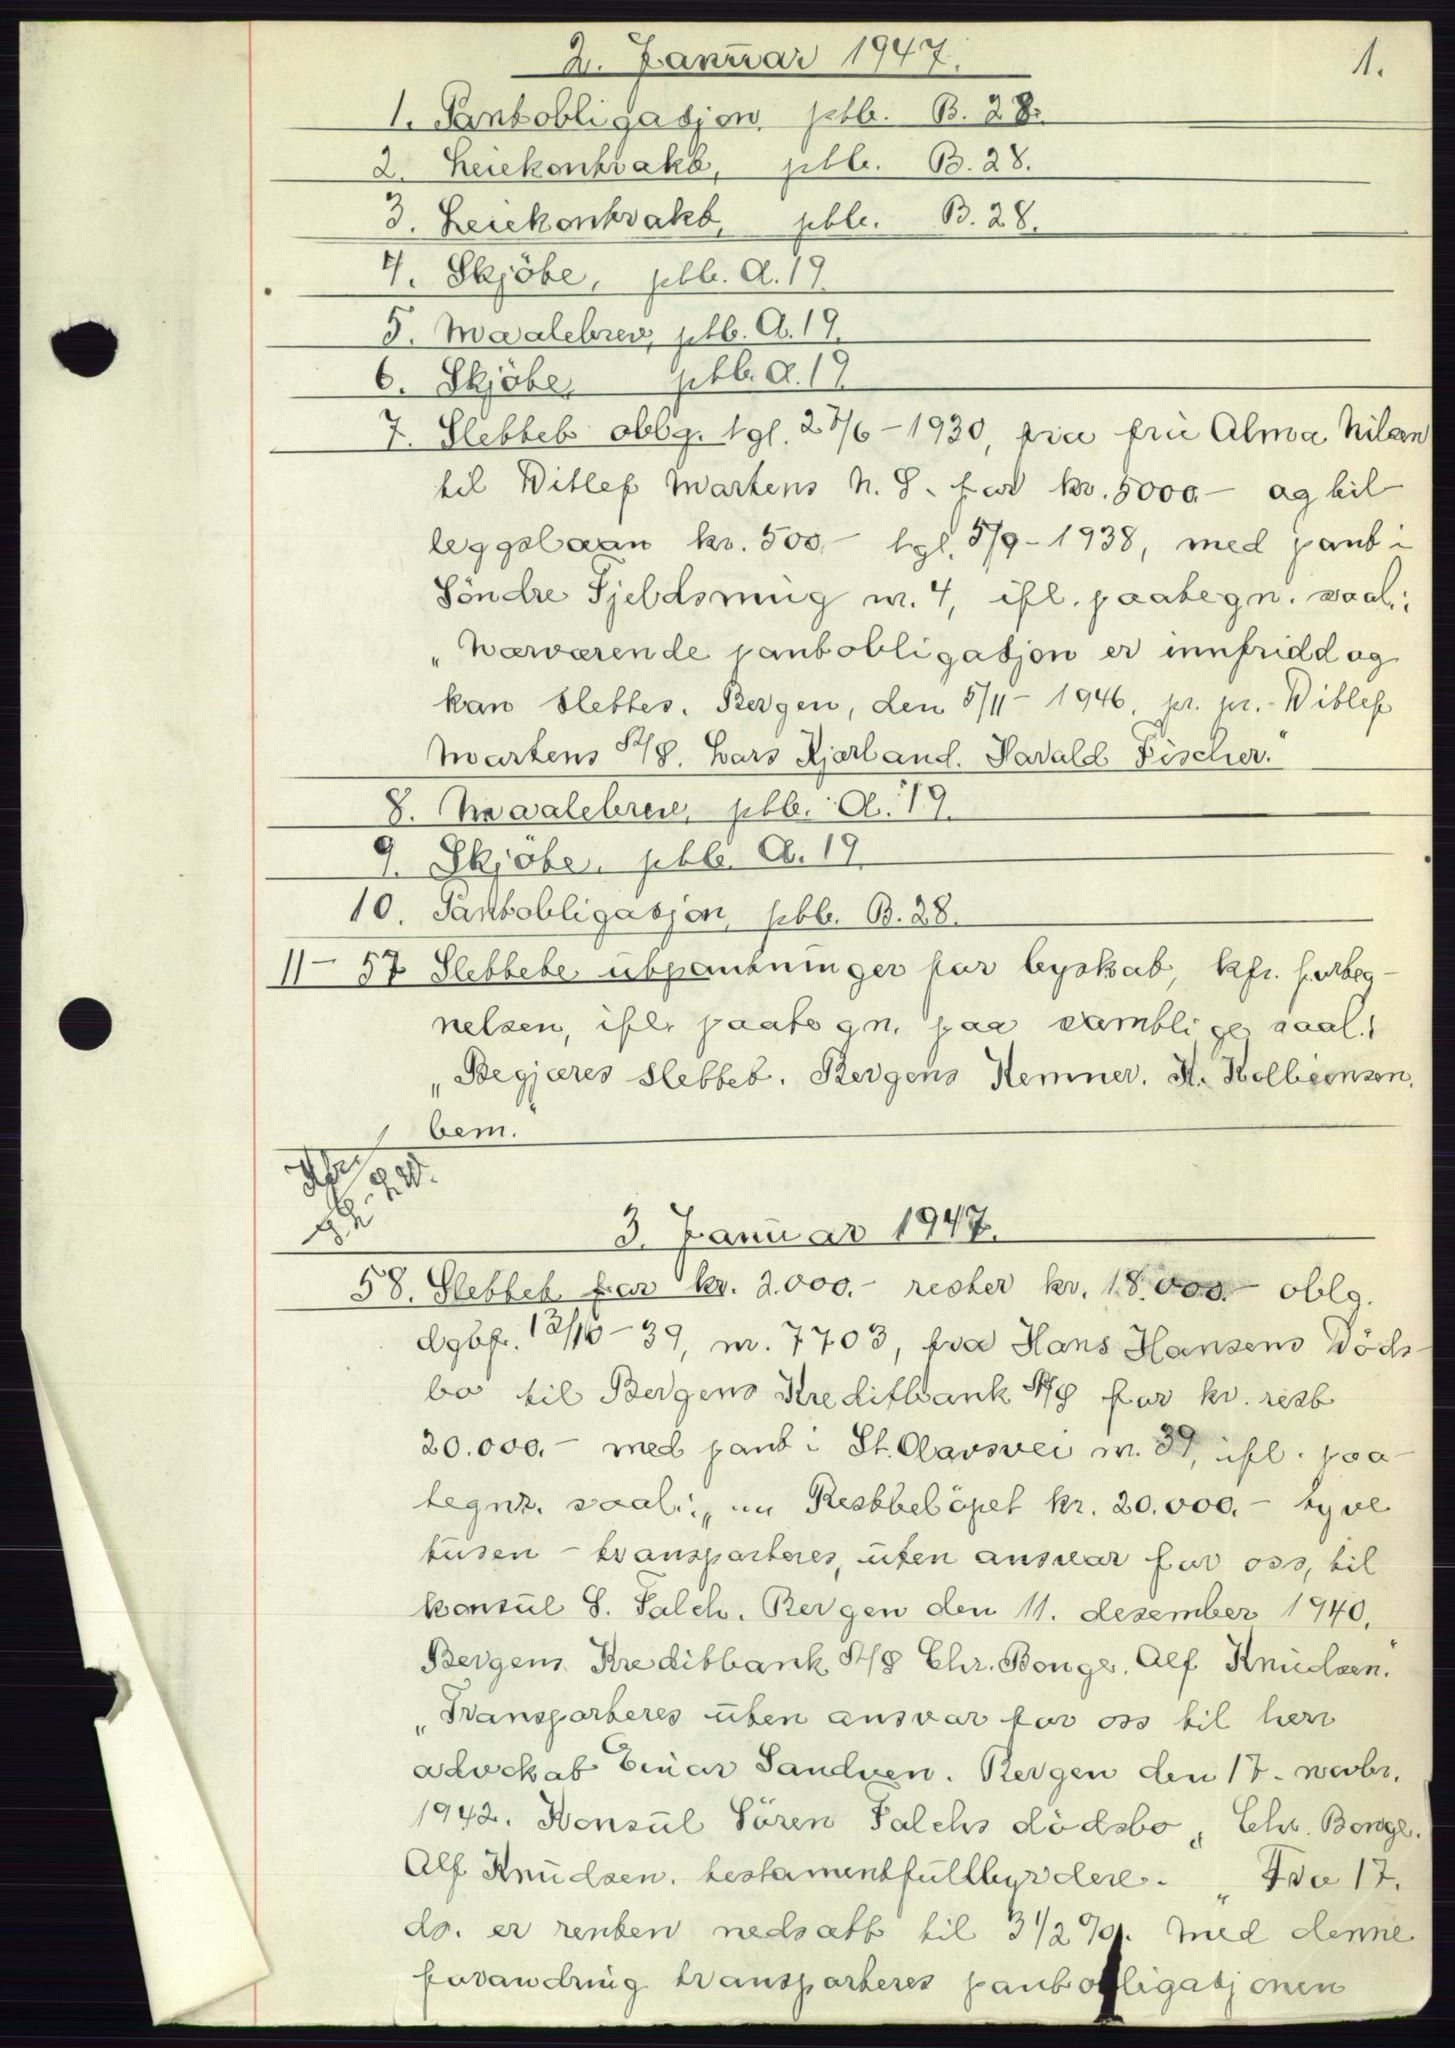 2. Januar 1947.
1.
1. Pantobligasjon, ptb. B. 28.
2. Leiekontrakt, ptb. B. 28.
3. Leiekontrakt, ptb. B. 28.
4. Skjöte, ptb. A. 19.
5. Maalebrev, ptb. A. 19.
6. Skjöte, ptb. A. 19
7. Slettet oblg. tgl. 27/6-1930, fra frü Alma Nilsen
til Ditlef Martens A. S. for kr. 5000.- og til
leggslaan kr. 500.- tgl. 5/9-1938, med pant i
Söndre Fjeldsmüg nr. 4, ifl. paategn. saal.:
„Nærværende pantobligasjon er innfridd og
kan slettes. Bergen, den 5/11-1946. pr. pr. Ditlef
Martens A/S. Lars Kjærland. Harald Fischer."
8. Maalebrev, ptb. A. 19.
9. Skjöte, ptb. A. 19
10. Pantobligasjon, ptb. B. 28.
11-57 Slettete utpantninger for byskat, kfr. forteg-
nelsen, ifl. paategn. paa samtlige saal.:
„Begjæres slettet. Bergens Kemner. K. Kolbeensen.
bem."
3. Januar 1947.
58. Slettet for kr. 2.000.- rester kr. 18.000.- oblg.
dgbf. 12/10-39, nr. 7703, fra Hans Hansens Döds-
bo til Bergens Kreditbank A/S for kr. rest
20.000.- med pant i St. Olavsvei nr. 39, ifl. paa-
tegn. saal.: „ Restbelöpet kr. 20.000.- tyve
tusen - transporteres, üten ansvar for oss, til
konsül S. Falch. Bergen den 11. desember 1940.
Bergens Kreditbank A/S Chr. Bonge. Alf Knüdsen."
„Transporteres üten ansvar for oss til herr
advokat Einar Sandven. Bergen den 17. novbr.
1942. Konsül Sören Falchs dödsbo „ Chr. Bonge.
Alf Knüdsen. testamentfüllbyrdere. „ Fra 17.
ds. er renten nedsatt til 3 1/2 %. Med denne
forandring transporteres pantobligasjonen